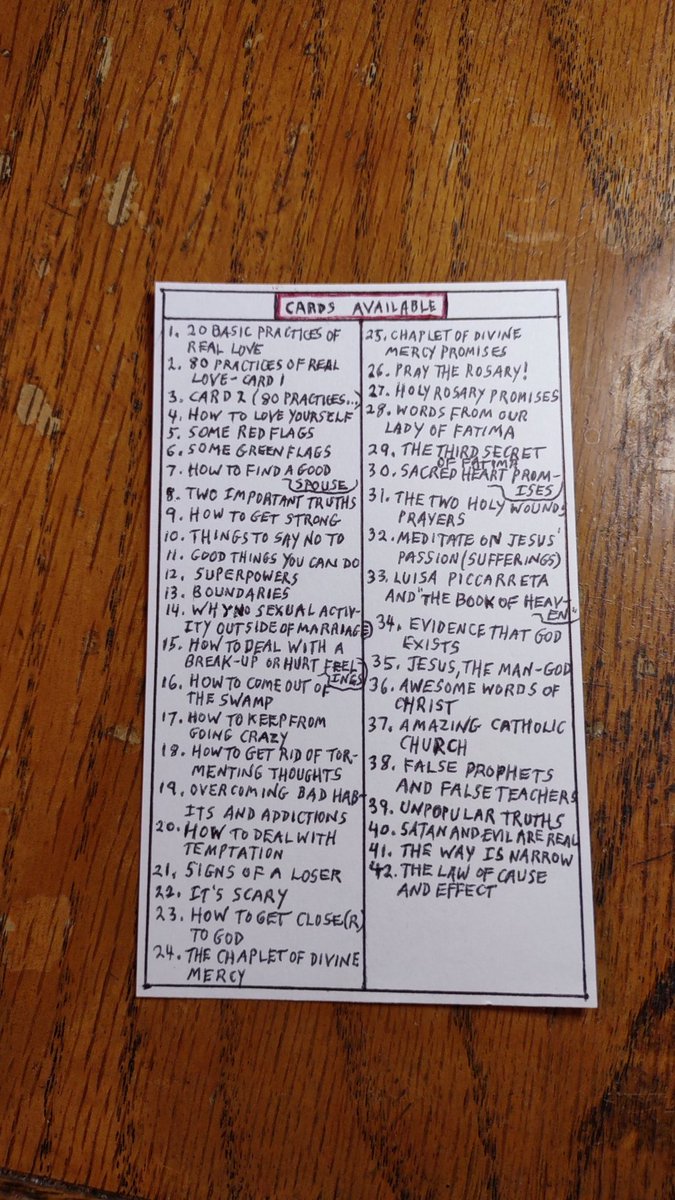 CARDS AVAILABLE
1. 20 BASIC PRACTICES OF
REAL LOVE
2. 80 PRACTICES OF REAL
LOVE - CARD 1
3. CARD 2 (80 PRACTICES...)
4. HOW TO LOVE YOURSELF
5. SOME RED FLAGS
6. SOME GREEN FLAGS
7. HOW TO FIND A GOOD
SPOUSE
8. TWO IMPORTANT TRUTHS
9. HOW TO GET STRONG
10. THINGS TO SAY NO TO
11. GOOD THINGS YOU CAN DO
12. SUPERPOWERS
13. BOUNDARIES
14. WHY NO SEXUAL ACTIV-
ITY OUTSIDE OF MARRIAGE
15. HOW TO DEAL WITH A
BREAK-UP OR HURT FEEL-
INGS
16. HOW TO COME OUT OF
THE SWAMP
17. HOW TO KEEP FROM
GOING CRAZY
18. HOW TO GET RID OF TOR-
MENTING THOUGHTS
19. OVERCOMING BAD HAB-
ITS AND ADDICTIONS
20. HOW TO DEAL WITH
TEMPTATION
21. SIGNS OF A LOSER
22. IT'S SCARY
23. HOW TO GET CLOSE(R)
TO GOD
24. THE CHAPLET OF DIVINE
MERCY
25. CHAPLET OF DIVINE
MERCY PROMISES
26. PRAY THE ROSARY!
27. HOLY ROSARY PROMISES
28. WORDS FROM OUR
LADY OF FATIMA
29. THE THIRD SECRET
OF FATIMA
30. SACRED HEART PROM-
ISES
31. THE TWO HOLY WOUNDS
PRAYERS
32. MEDITATE ON JESUS'
PASSION (SUFFERINGS)
33. LUISA PICCARRETA
AND "THE BOOK OF HEAV-
EN"
34. EVIDENCE THAT GOD
EXISTS
35. JESUS, THE MAN-GOD
36. AWESOME WORDS OF
CHRIST
37. AMAZING CATHOLIC
CHURCH
38. FALSE PROPHETS
AND FALSE TEACHERS
39. UNPOPULAR TRUTHS
40. SATAN AND EVIL ARE REAL
41. THE WAY IS NARROW
42. THE LAW OF CAUSE
AND EFFECT